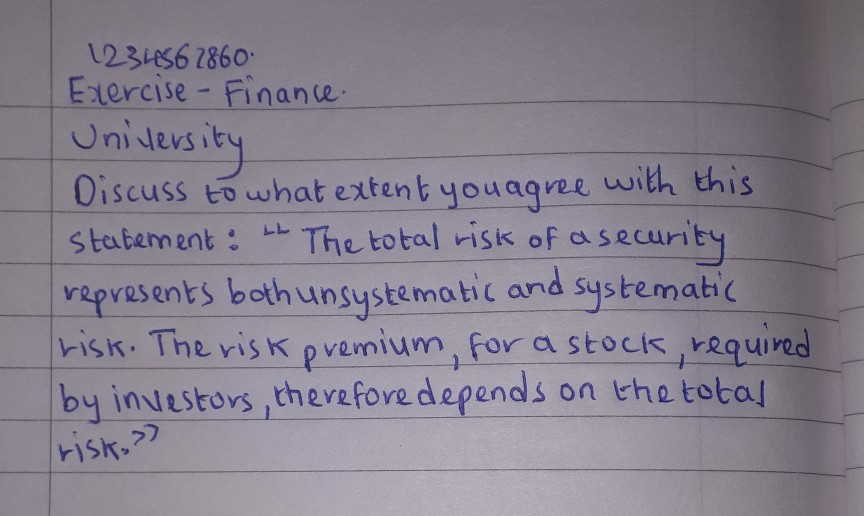 1234567860.
Exercise - Finance.
University
Discuss to what extent you agree with this
statement: "The total risk of a security
represents both unsystematic and systematic
risk. The risk premium, for a stock, required
by investors, therefore depends on the total
risk."